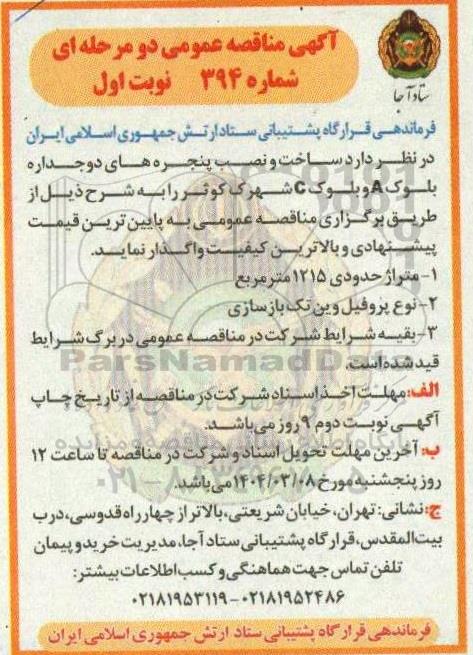 آگهی مناقصه عمومی دو مرحله ای
شماره ۳۹۴ نوبت اول
ستاد آجا
فرماندهی قرارگاه پشتیبانی ستاد ارتش جمهوری اسلامی ایران
در نظر دارد ساخت و نصب پنجره های دوجداره
بلوک A و بلوک C شهرک کوثر را به شرح ذیل از
طریق برگزاری مناقصه عمومی به پایین ترین قیمت
پیشنهادی و بالاترین کیفیت واگذار نماید.
۱- متراژ حدودی ۱۲۱۵ مترمربع
۲- نوع پروفیل وین تک بازسازی
۳- بقیه شرایط شرکت در مناقصه عمومی در برگ شرایط
قید شده است.
ParsNamadData
الف: مهلت اخذ اسناد شرکت در مناقصه از تاریخ چاپ
آگهی نوبت دوم ۹ روز می باشد.
ب: آخرین مهلت تحویل اسناد و شرکت در مناقصه تا ساعت ۱۲
روز پنجشنبه مورخ ۱۴۰۴/۰۳/۰۸ می باشد.
ج: نشانی: تهران، خیابان شریعتی، بالاتر از چهارراه قدوسی، درب
بیت المقدس، قرارگاه پشتیبانی ستاد آجا، مدیریت خرید و پیمان
تلفن تماس جهت هماهنگی و کسب اطلاعات بیشتر:
۰۲۱۸۱۹۵۳۱۱۹-۰۲۱۸۱۹۵۲۴۸۶
فرماندهی قرارگاه پشتیبانی ستاد ارتش جمهوری اسلامی ایران